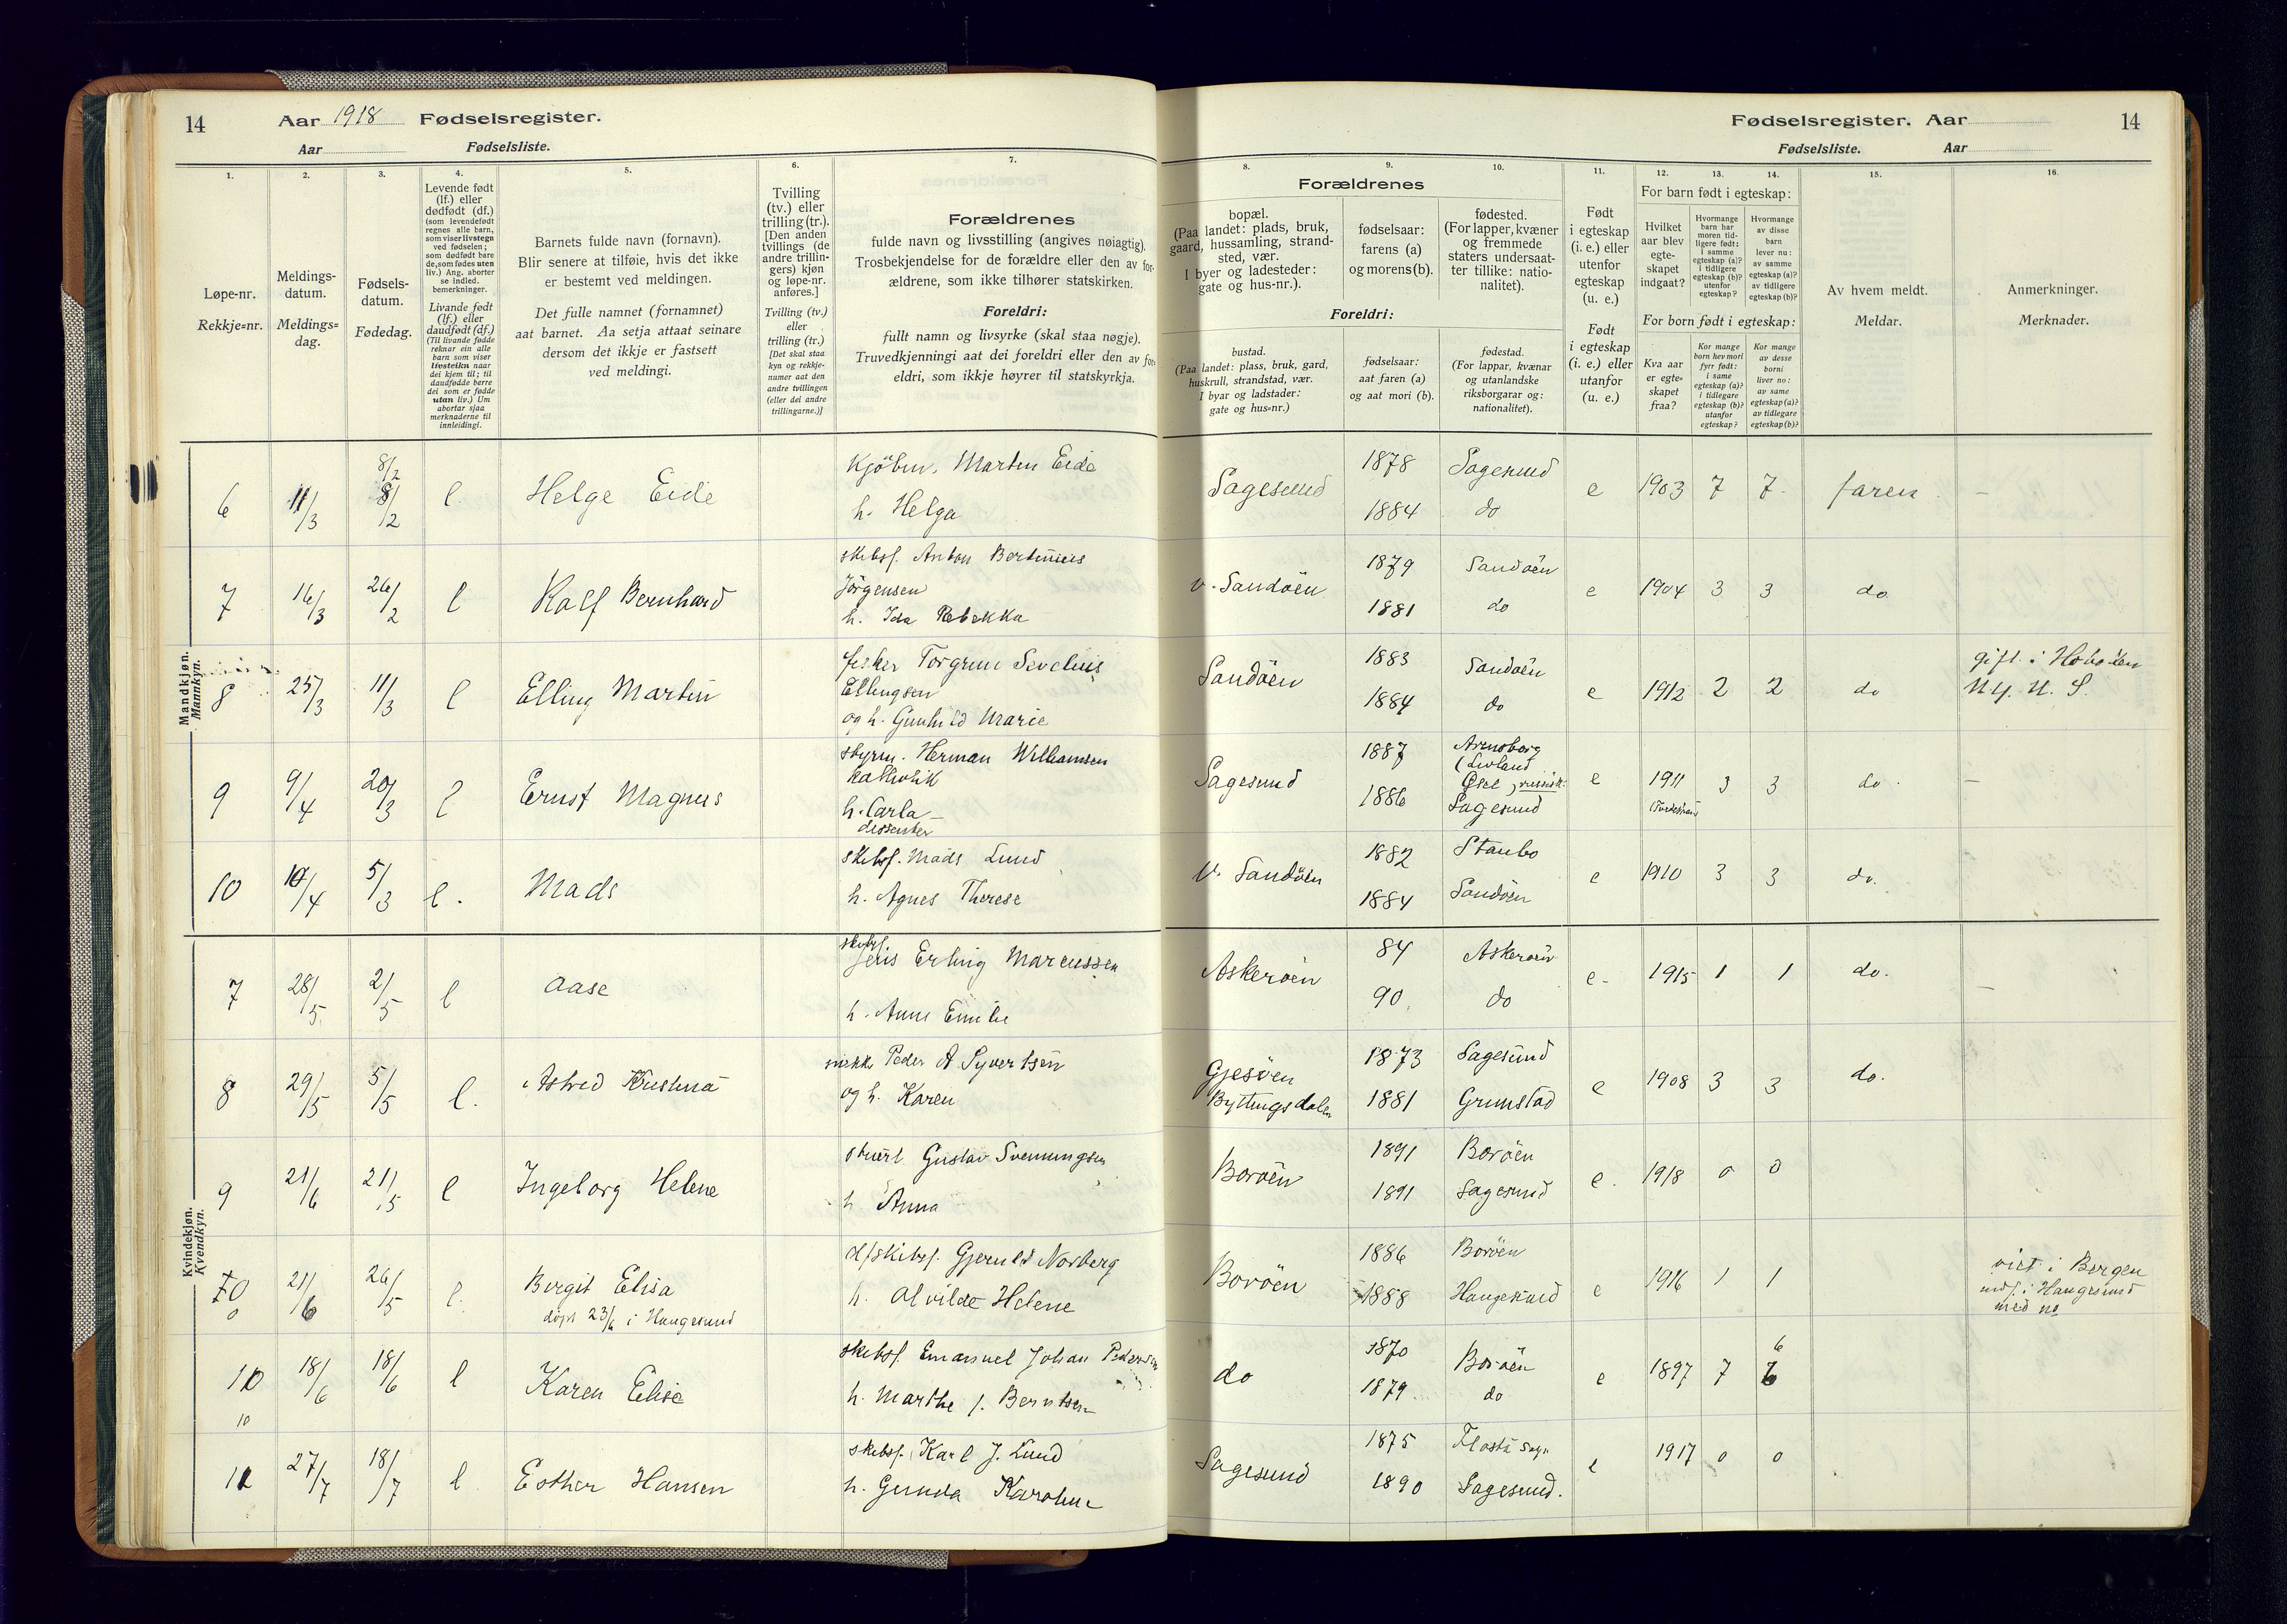 14 Aar 1918 Fødselsregister.
Aar Fødselsliste.
Fødselsregister. Aar 14
Fødselsliste. Aar
1. 2. 3. 4. 5. 6. 7. 8. 9. 10. 11. 12. 13. 14. 15. 16.
Løpe-nr.
Rekkje=nr.
Meldings-
datum.
Meldings=
dag.
Fødsels-
datum.
Fødedag.
Levende født
(lf.) eller
dødfødt (df.)
(som levendefødt
regnes alle barn,
som viser livstegn
ved fødselen;
som dødfødt bare
de, som fødes uten
liv.) Ang. aborter
se indled.
bemerkninger.
Livande født
(lf.) eller
daudfødt (df.)
(Til livande fødde
reknar ein alle
barn som viser
livsteikn naar
dei kjem til; til
daudfødde berre
dei som er fødde
utan liv.) Um
abortar sjaa
merknaderne til
innleidingi.
Barnets fulde navn (fornavn).
Blir senere at tilføie, hvis det ikke
er bestemt ved meldingen.
Det fulle namnet (fornamnet)
aat barnet. Aa setja attaat seinare
dersom det ikkje er fastsett
ved meldingi.
Tvilling
(tv.) eller
trilling (tr.).
[Den anden
tvillings (de
andre trillin-
gers) kjøn
og løpe-nr.
anføres.]
Tvilling (tv.)
eller
trilling (tr.)
[Det skal staa
kyn og rekkje-
numer aat den
andre tvillingen
(eller dei andre
trillingarne.)]
Forældrenes
fulde navn og livsstilling (angives nøiagtig).
Trosbekjendelse for de forældre eller den av for-
ældrene, som ikke tilhører statskirken.
Foreldri:
fullt namn og livsyrke (skal staa nøgje).
Truvedkjenningi aat dei foreldri eller den av for-
eldri, som ikkje høyrer til statskyrkja.
Forældrenes
bopæl.
(Paa landet: plads, bruk,
gaard, hussamling, strand-
sted, vær.
I byer og ladesteder:
gate og hus-nr.).
fødselsaar:
farens (a)
og morens (b).
fødested.
(For lapper, kvæner
og fremmede
staters undersaat-
ter tillike: natio-
nalitet).
Foreldri:
bustad.
(Paa landet: plass, bruk, gard,
huskrull, strandstad, vær.
I byar og ladstader:
gate og hus=nr.)
fødselsaar:
aat faren (a)
og aat mori (b).
fødestad.
(For lappar, kvænar
og utanlandske
riksborgarar og:
nationalitet).
Født
i egteskap
(i. e.) eller
utenfor
egteskap
(u. e.)
Født
i egteskap
(i. e.) eller
utanfor
(u. e.)
For barn født i egteskap:
Hvilket
aar blev
egte-
skapet
indgaat?
Hvormange
barn har
moren tid-
ligere født:
i samme
egteskap (a)?
i tidligere
egteskap (b)?
utenfor
egteskap?
Hvormange
av disse
barn
lever nu:
av samme
egteskap (a)?
av tidligere
egteskap (b)?
For born født i egteskap:
Kva aar
er egte=
skapet
fraa?
Kor mange
born hev mori
fyrr født:
i same
egteskap (a)?
i tidlegare
egteskap (b)?
utanfor
egteskap?
Kor mange
av desse
borni
liver no:
av same
egteskap (a)?
av tidlegare
egteskap (b)?
Av hvem meldt.
Meldar.
Anmerkninger.
Merknader.
Mandkjøn.
Mannkyn.
8/2
6 11/3 8/2 l. Helge Eide Kjöbm. Martin Eide Sagesund 1878 Sagesund e 1903 7 7. faren. –
h. Helga 1884 do
7 16/3 26/2 l Rolf Bernhard skibsf. Anton Bertinius v. Sandöen 1879 Sandöen e 1904 3 3 do
Jörgensen
h. Ida Rebekka 1881 do
8 25/3 11/3 l Elling Martin fisker Torgrim Sevelius Sandöen 1883 Sandöen e 1912 2 2 do gift i Hoboken
Ellingsen N.Y. U. S.
og h. Gunhild Marie 1884 do
9 9/4 20/3 l Ernst Magnus styrm. Herman Williamsen Sagesund 1887 Arensborg e 1911 3 3 do –
katholik (Livland
Ösel, russisk
h. Carla – 1886 Sagesund
dissenter
10 10/4 5/3 l. Mads skibsf. Mads Lund v. Sandöen 1882 Staubo e 1910 3 3 do.
h. Agnes Therese 1884 Sandöen
Kvindekjøn.
Kvendkyn.
skibsf.
7 28/5 2/5 l Aase Jens Erling Marcussen Askeröen 84 Askeröen e. 1915 1 1 do. –
h. Anne Emilie 90 do
8 29/5 5/5 l. Astrid Kristina Peder A Syvertsen Gjesöen 1873 Sagesund e 1908 3 3 do.
og h. Karen Byttingsdalen 1881 Grimstad
9 21/6 21/5 l Ingeborg Helene stuert Gustav Svenningsen Boröen 1891 Boröen e. 1918 0 0
h Anna 1891 Sagesund
10 21/6 26/5 l. Birgit Elisa Gjerulf Norberg Boröen 1886 Boröen e 1916 1 1 viet i Bergen
döpt 23/6 i Haugesund h. Alvilde Helene 1888 Haugesund indf. i Haugesund
med no
10 18/6 18/6 l Karen Elise skibsf. Emanuel Johan Pedersen do 1870 Boröen e 1897 7 6
10 h. Marthe f. Berntsen 1879 do
11 27/7 18/7 l Esther Hansen skibsf. Karl J. Lund Sagesund 1875 Flosta sogn e 1917 0 0
h. Gunda Karoline 1890 Sagesund.